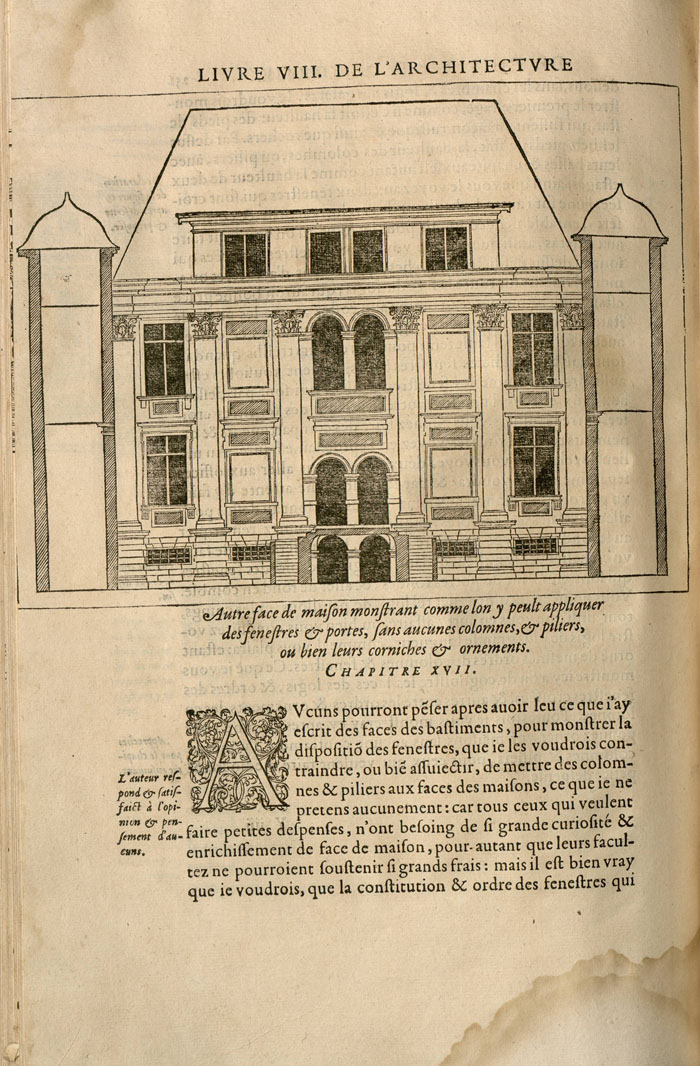 LIVRE VIII. DE L'ARCHITECTVRE
Autre face de maiſon monſtrant comme lon y peult appliquer
des feneſtres & portes, ſans aucunes colomnes, & piliers,
ou bien leurs corniches & ornements.
CHAPITRE XVII.
AVcuns pourront pẽſer apres auoir leu ce que i'ay
eſcrit des faces des baſtiments, pour monſtrer la
diſpoſitiõ des feneſtres, que ie les voudrois con-
traindre, ou biẽ aſſuiectir, de mettre des colom-
nes & piliers aux faces des maiſons, ce que ie ne
pretens aucunement: car tous ceux qui veulent
faire petites deſpenſes, n'ont beſoing de ſi grande curioſité &
enrichiſſement de face de maiſon, pour-autant que leurs facul-
tez ne pourroient ſouſtenir ſi grands frais: mais il eſt bien vray
que ie voudrois, que la conſtitution & ordre des feneſtres qui
L'auteur reſ-
pond & ſatiſ-
faict à l'opi-
nion & pen-
ſement d'au-
cuns.